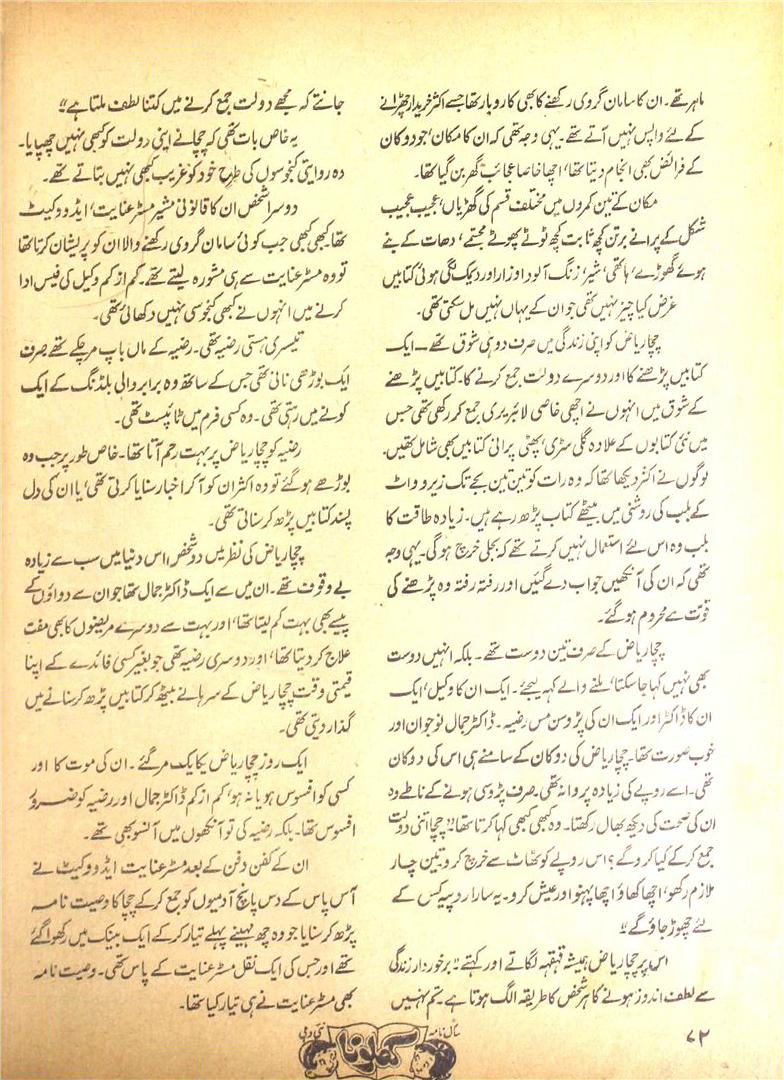 ماہر تھے۔ ان کا سامان گروی رکھنے کا بھی کاروبار تھا جسے اکثر خریدار چھڑانے
کے لئے واپس نہیں آتے تھے۔ یہی وجہ تھی کہ ان کا مکان، جو دوکان
کے فرائض بھی انجام دیتا تھا، اچھا خاصا عجائب گھر بن گیا تھا۔
مکان کے تین کمروں میں مختلف قسم کی گھڑیاں، عجیب عجیب
شکل کے پرانے برتن کچھ ثابت کچھ ٹوٹے پھوٹے مجسمے، دھات کے بنے
ہوئے گھوڑے، ہاتھی، شیر، زنگ آلود اوزار اور دیمک لگی ہوئی کتابیں
غرض کیا چیز نہیں تھی جو ان کے یہاں نہیں مل سکتی تھی۔
چچا ریاض کو اپنی زندگی میں صرف دو ہی شوق تھے — ایک
کتابیں پڑھنے کا اور دوسرے دولت جمع کرنے کا۔ کتابیں پڑھنے
کے شوق میں انہوں نے اچھی خاصی لائبریری جمع کر رکھی تھی جس
میں نئی کتابوں کے علاوہ گلی سڑی، پھٹی پرانی کتابیں بھی شامل تھیں۔
لوگوں نے اکثر دیکھا تھا کہ وہ رات کو تین تین بجے تک زیرو واٹ
کے بلب کی روشنی میں بیٹھے کتاب پڑھ رہے ہیں۔ زیادہ طاقت کا
بلب وہ اس لئے استعمال نہیں کرتے تھے کہ بجلی خرچ ہو گی۔ یہی وجہ
تھی کہ ان کی آنکھیں جواب دے گئیں اور رفتہ رفتہ وہ پڑھنے کی
قوت سے محروم ہو گئے۔
چچا ریاض کے صرف تین دوست تھے۔ بلکہ انہیں دوست
بھی نہیں کہا جا سکتا، ملنے والے کہہ لیجئے۔ ایک ان کا وکیل، ایک
ان کا ڈاکٹر اور ایک ان کی پڑوسن مس رضیہ۔ ڈاکٹر جمال نوجوان اور
خوب صورت تھا۔ چچا ریاض کی دوکان کے سامنے ہی اس کی دوکان
تھی۔ اسے روپے کی زیادہ پروا نہ تھی۔ صرف پڑوسی ہونے کے ناطے وہ
ان کی صحت کی دیکھ بھال رکھتا۔ وہ کبھی کبھی کہا کرتا تھا "چچا اتنی دولت
جمع کر کے کیا کرو گے؟ اس روپے کو ٹھاٹ سے خرچ کرو، تین چار
ملازم رکھو، اچھا کھاؤ اچھا پہنو اور عیش کرو۔ یہ سارا روپیہ کس کے
لئے چھوڑ جاؤ گے"
اس پر چچا ریاض ہمیشہ قہقہہ لگاتے اور کہتے "برخوردار زندگی
سے لطف اندوز ہونے کا ہر شخص کا طریقہ الگ ہوتا ہے۔ تم نہیں
جانتے کہ مجھے دولت جمع کرنے میں کتنا لطف ملتا ہے"
یہ خاص بات تھی کہ چچا نے اپنی دولت کو کبھی نہیں چھپایا۔
وہ روایتی کنجوسوں کی طرح خود کو غریب کبھی نہیں بتاتے تھے۔
دوسرا شخص ان کا قانونی مشیر مسٹر عنایت، ایڈووکیٹ
تھا کبھی کبھی جب کوئی سامان گروی رکھنے والا ان کو پریشان کرتا تھا
تو وہ مسٹر عنایت سے ہی مشورہ لیتے تھے۔ کم از کم وکیل کی فیس ادا
کرنے میں انہوں نے کبھی کنجوسی نہیں دکھائی تھی۔
تیسری ہستی رضیہ تھی۔ رضیہ کے ماں باپ مر چکے تھے صرف
ایک بوڑھی نانی تھی جس کے ساتھ وہ برابر والی بلڈنگ کے ایک
کونے میں رہتی تھی۔ وہ کسی فرم میں ٹائپسٹ تھی۔
رضیہ کو چچا ریاض پر بہت رحم آتا تھا۔ خاص طور پر جب وہ
بوڑھے ہو گئے تو وہ اکثر ان کو آ کر اخبار سنایا کرتی تھی، یا ان کی دل
پسند کتابیں پڑھ کر سناتی تھی۔
چچا ریاض کی نظر میں دو شخص اس دنیا میں سب سے زیادہ
بے وقوف تھے۔ ان میں سے ایک ڈاکٹر جمال تھا جو ان سے دواؤں کے
پیسے بھی بہت کم لیتا تھا، اور بہت سے دوسرے مریضوں کا بھی مفت
علاج کر دیتا تھا، اور دوسری رضیہ تھی جو بغیر کسی فائدے کے اپنا
قیمتی وقت چچا ریاض کے سرہانے بیٹھ کر کتابیں پڑھ کر سنانے میں
گذار دیتی تھی۔
ایک روز چچا ریاض یکایک مر گئے۔ ان کی موت کا اور
کسی کو افسوس ہو یا نہ ہو، کم از کم ڈاکٹر جمال اور رضیہ کو ضرور
افسوس تھا۔ بلکہ رضیہ کی تو آنکھوں میں آنسو بھی تھے۔
ان کے کفن دفن کے بعد مسٹر عنایت ایڈووکیٹ نے
آس پاس کے دس پانچ آدمیوں کو جمع کر کے چچا کا وصیت نامہ
پڑھ کر سنایا جو وہ چھ مہینے پہلے تیار کر کے ایک بینک میں رکھوا گئے
تھے اور جس کی ایک نقل مسٹر عنایت کے پاس تھی۔ وصیت نامہ
بھی مسٹر عنایت نے ہی تیار کیا تھا۔
۷۲
سالنامہ کھلونا نئی دہلی